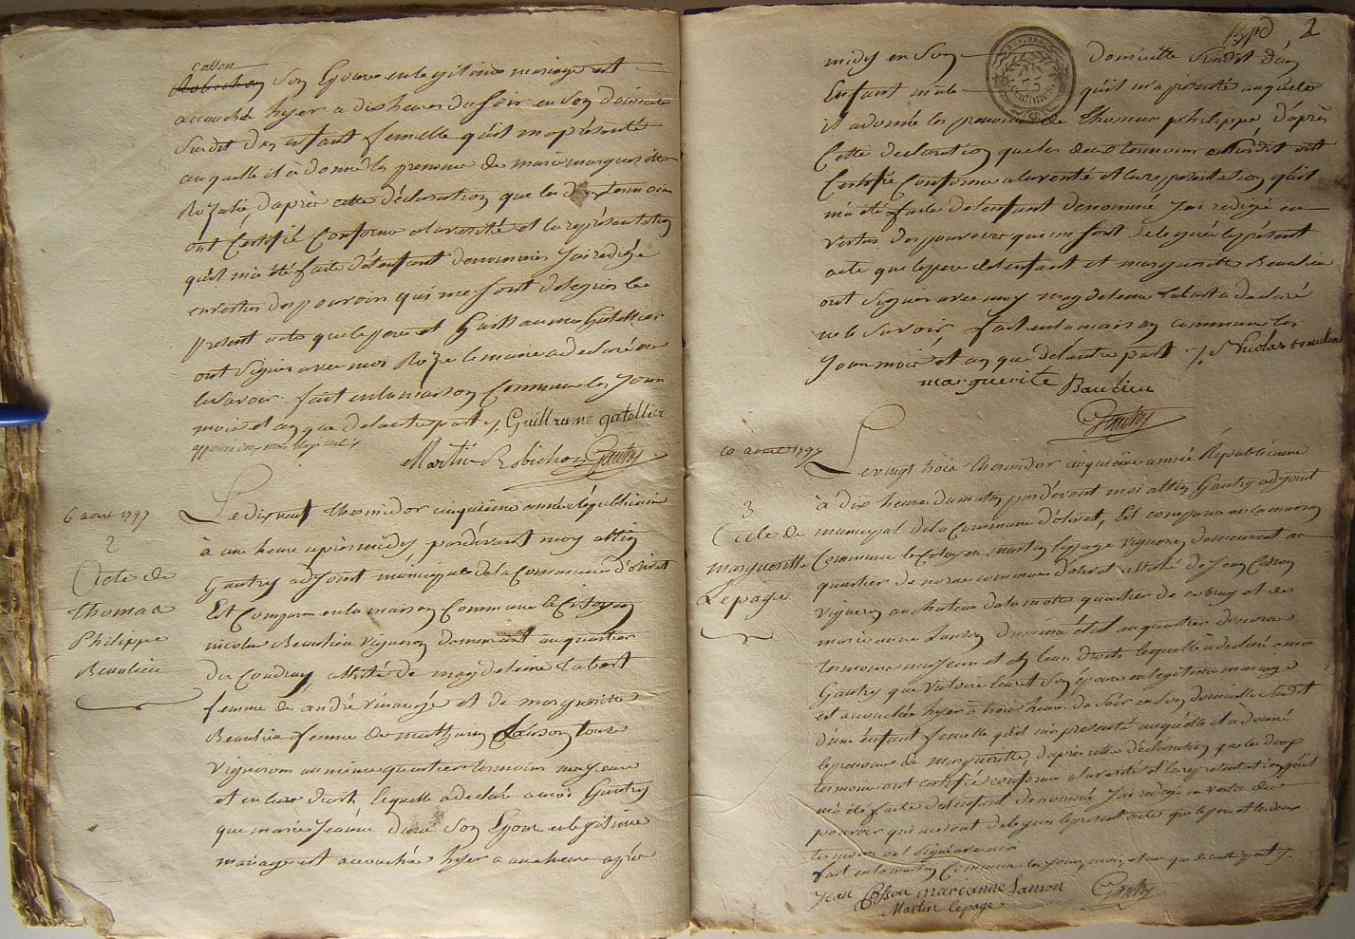 son Epouse en legitime mariage est
accouchée hyer a dix heures du soir en son domicile
Susdit d'un enfant femelle qu'il m'a présenté
auquelle il a donné les prenoms de marie marguerite
Rozalie, d'après cette déclaration que les deux temoins
ont Certifié Conforme a la verité et la représentation
qu'il m'a été faite de l'enfant denommé J'ai redigé
en vertus des pouvoirs qui me sont delegués le
present acte que le pere et Guillaume Gatellier
ont signés avec moi Roze lemaire a declaré ne
le savoir. fait en la maison Commune les Jour
mois et an que de l'autre part Guillaume gatellier
Martin Robichon Gautry
6 aout 1797
2
Acte de
Thomas
Philippe
Beaulieu
Le dix neuf thermidor cinquième année républicaine
à une heure après midy, pardevant moy
Gautry adjoint municipal de la Commune d'olivet
Est Comparu en la maison Commune le Citoyen
nicolas Beaulieu vigneron demeurant au quartier
du Coudray assisté de magdeleine
femme de andré et de marguerite
Beaulieu femme de mathurin tous
vignerons au même quartier temoins majeurs
et en leurs droits, lequelle a declaré a moi Gautry
que marie Jeanne son Epouse en legitime
mariage est accouchée hyer a une heure après
2
midy en son domicille Susdit d'un
Enfant male qu'il m'a presenté auquelle
il a donné les prenoms de thomas philippe d'après
Cette declaration que les deux temoins ont
Certifié Conforme a la verité et la representation qu'il
m'a été faite de l'enfant denommé J'ai redigé en
vertus des pouvoirs qui me sont delegués le present
acte que le pere de l'enfant et marguerite Beaulieu
ont signés avec moy magdeleine a declaré
ne le savoir, fait en la maison commune les
Jour mois et an que de l'autre part Nicolas beaulieu
marguerite Baulieu
Gautry
10 aout 1797
3
Acte de
marguerite
Lepage
Le vingt trois thermidor cinquième année Républicaine
à dix heure du matin pardevant moi Gautry adjoint
municipal de la Commune d'olivet, Est comparu en la maison
Commune le Citoyen martin lepage vigneron demeurant au
quartier de commune d'olivet assisté de Jean
vigneron au chateau de la motte quartier de et de
marie anne au quartier
temoins majeurs et en leurs droits lequelle a declaré a moi
Gautry que son épouse en legitime mariage
est accouchée hyer a trois heure du soir en son domicille susdit
d'une enfant femelle qu'il m'a presenté auquelle il a donné
le prenom de marguerite, d'après cette déclaration que les deux
temoins ont certifié conforme a la verité et la representation qu'il
m'a été faite de l'enfant denommé J'ai redigé en vertu des
pouvoir qui me sont delegués le present acte que le pere et les deux
temoins ont signés avec moi
fait en la maison Commune les jour, mois et an que de l'autre part
Jean marianne Lanson Gautry
Martin lepage